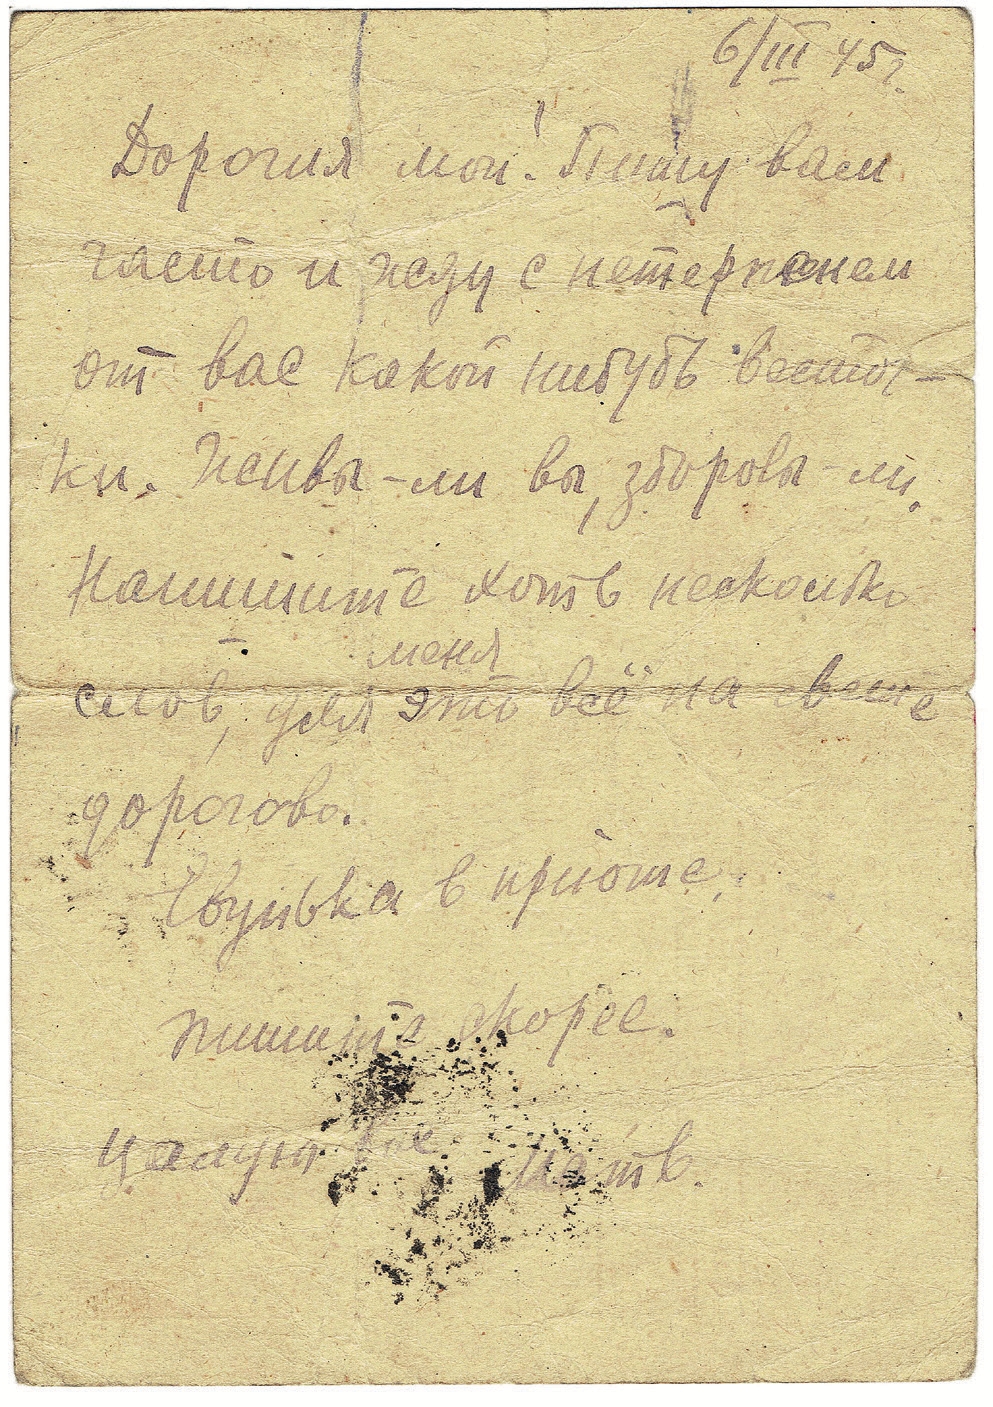 6/III 45 г.
Дорогия мои! Пишу вам
часто и жду с нетерпенем
от вас какой нибудь весточ-
ки. Живы-ли вы, здоровы-ли.
Напишите хоть несколько
меня
слов, для это всё на свете
дорогово.
в приюте.
пишите скорее.
целую вас мать.